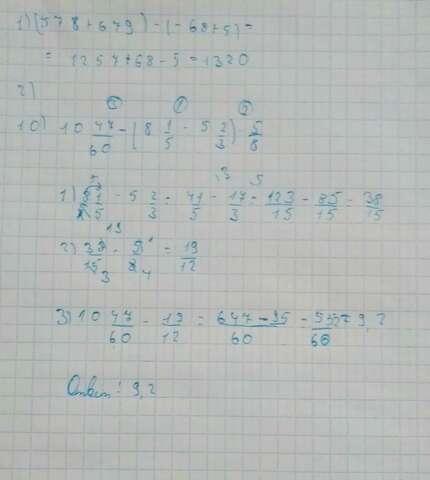 1) (578+679) - (-68+5) =
= 1257+68-5=1320
2)
③ ① ②
10) 10 47/60 - (8 1/5 - 5 2/3) · 5/8
1) 8 1/5 - 5 2/3 = 41/5 - 17/3 = 123/15 - 85/15 = 38/15
2) 38/15 · 5/8 = 19/12
3) 10 47/60 - 19/12 = 647-95/60 = 552/60 = 9,2
Ответ: 9,2